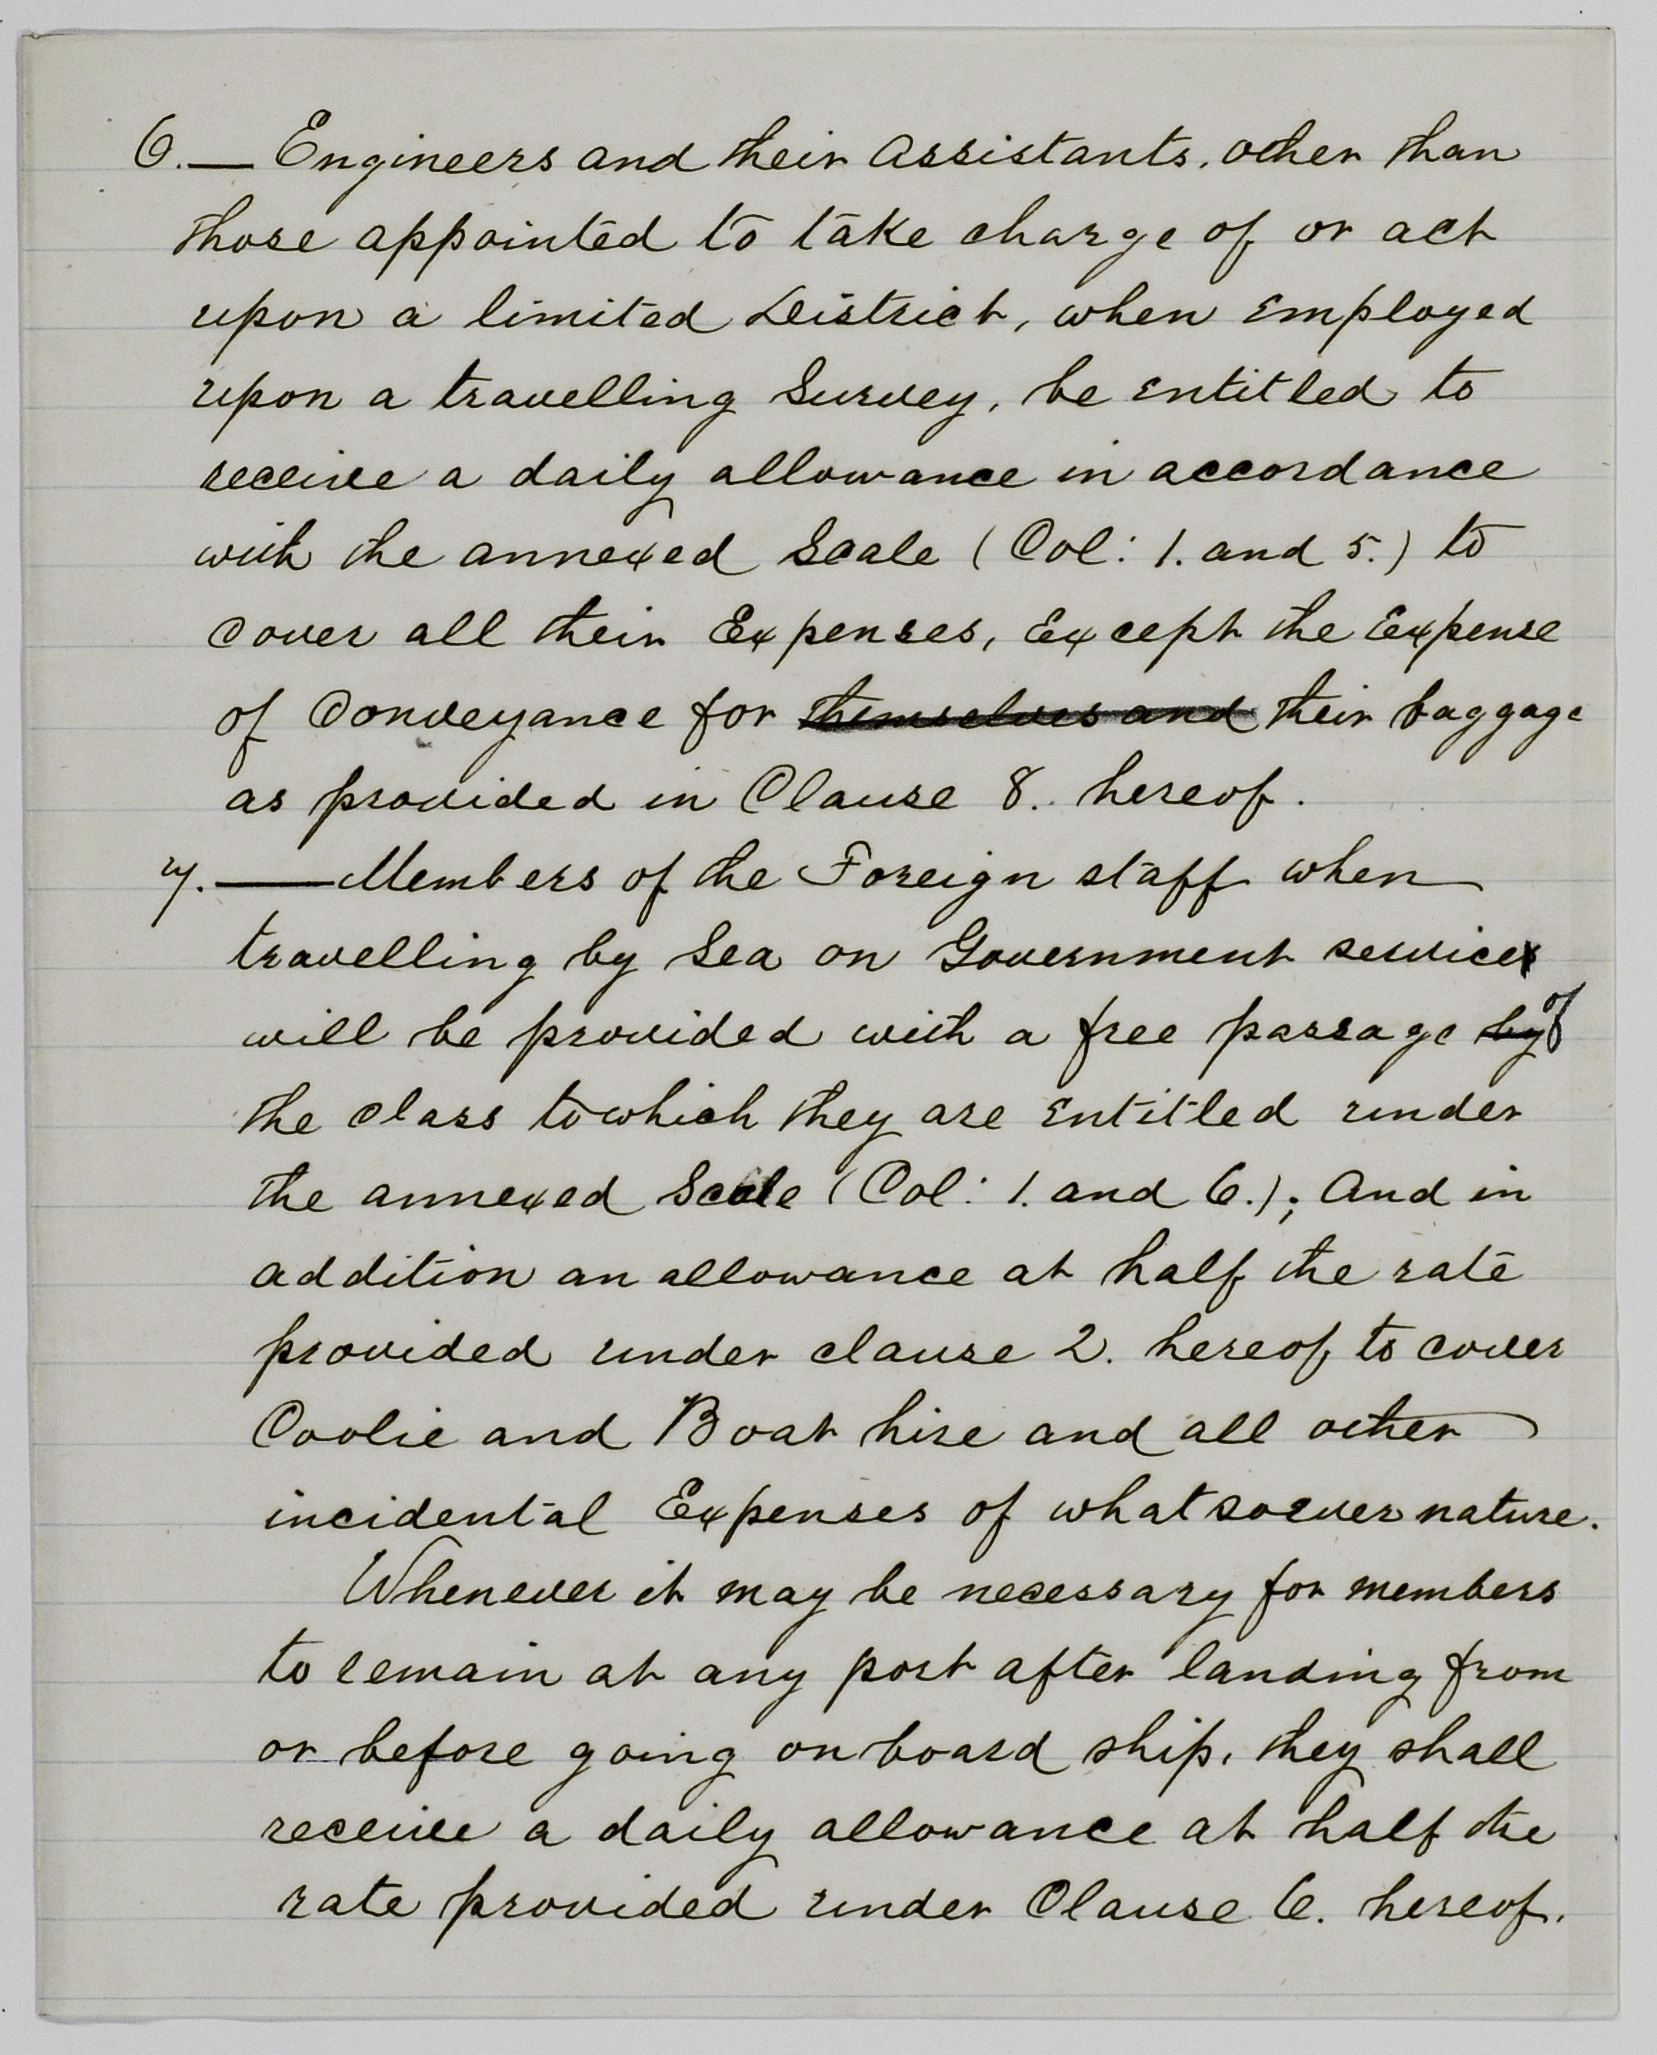 6.— Engineers and their Assistants, other than
those appointed to take charge of or act
upon a limited District, when employed
upon a travelling Survey, be entitled to
receive a daily allowance in accordance
with the annexed Scale (Col: 1. and 5.) to
cover all their Expenses, Except the Expense
of Conveyance for themselves and their baggage
as provided in Clause 8. hereof.
7.—Members of the Foreign staff when
travelling by Sea on Government service
will be provided with a free passage by of
the class to which they are entitled under
the annexed Scale (Col: 1. and 6.); And in
addition an allowance at half the rate
provided under clause 2. hereof to cover
Coolie and Boat hire and all other
incidental Expenses of whatsoever nature.
Whenever it may be necessary for members
to remain at any port after landing from
or before going on board ship, they shall
receive a daily allowance at half the
rate provided under Clause 6. hereof.